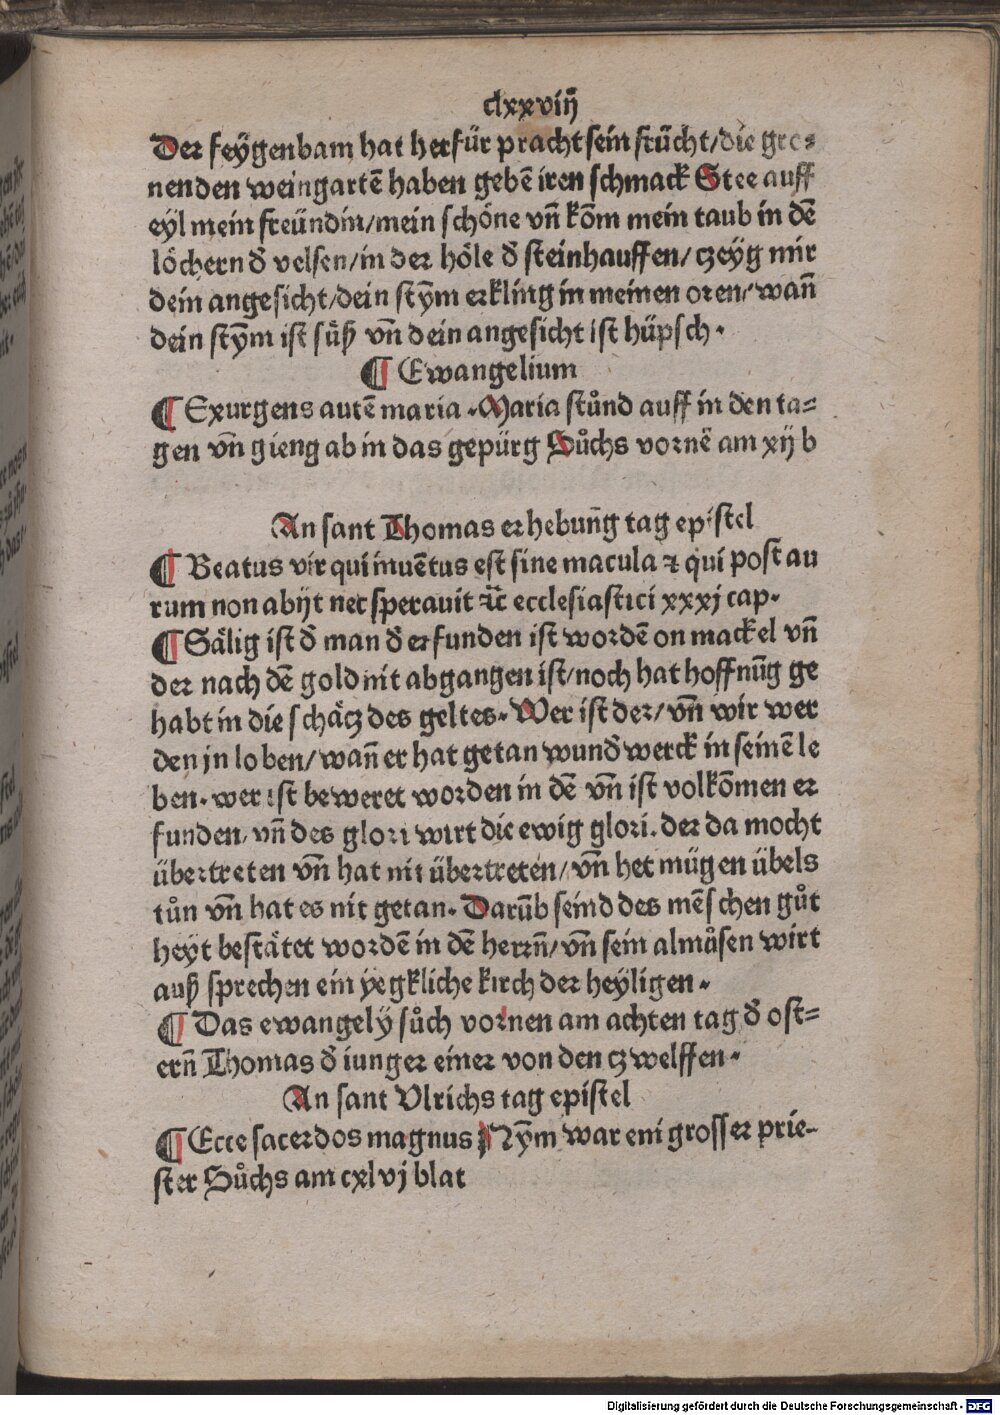 clxxviij
Der feygenbam hat herfür pracht sein frücht/die gre⸗
nenden weingartē haben gebē iren schmack Stee auff
eyl mein freündin/mein schöne vn̄ kōm mein taub in dē
löchern d̄ velsen/in der höle d̄ steinhauffen/ czeyg mir
dein angesicht/dein stȳm erkling in meinen oren/wan̄
dein stȳm ist süß vn̄ dein angesicht ist hüpsch.
¶ Ewangelium
¶ Exurgens autē maria. Maria stůnd auff in den ta⸗
gen vn̄ gieng ab in das gepürg Sůchs vornē am xij b
An sant Thomas erhebun̄g tag epistel
¶ Beatus vir qui inuētus est sine macula ⁊ qui post au
rum non abijt nec sperauit ⁊c̄ ecclesiastici xxxj cap.
¶ Sälig ist d̄ man d̄ erfunden ist wordē on mackel vn̄
der nach dē gold nit abgangen ist/noch hat hoffnūg ge
habt in die schäcz des geltes. Wer ist der/vn̄ wir wer
den jn loben/wan̄ er hat getan wund̄werck in seinē le
ben. wer ist beweret worden in dē vn̄ ist volkōmen er
funden, vn̄ des glori wirt die ewig glori. der da mocht
übertreten vn̄ hat nit übertreten/vn̄ het mügen übels
tůn vn̄ hat es nit getan. Darūb seind des mēschen gůt
heyt bestätet wordē in dē herrn̄/vn̄ sein almůsen wirt
auß sprechen ein yegkliche kirch der heyligen.
¶ Das ewangely sůch vornen am achten tag d̄ ost⸗
ern̄ Thomas d̄ iunger einer von den czwelffen.
An sant Vlrichs tag epistel
¶ Ecce sacerdos magnus Nȳm war eni grosser prie⸗
ster Sůchs am cxlvj blat
Digitalisierung gefördert durch die Deutsche Forschungsgemeinschaft - DFG